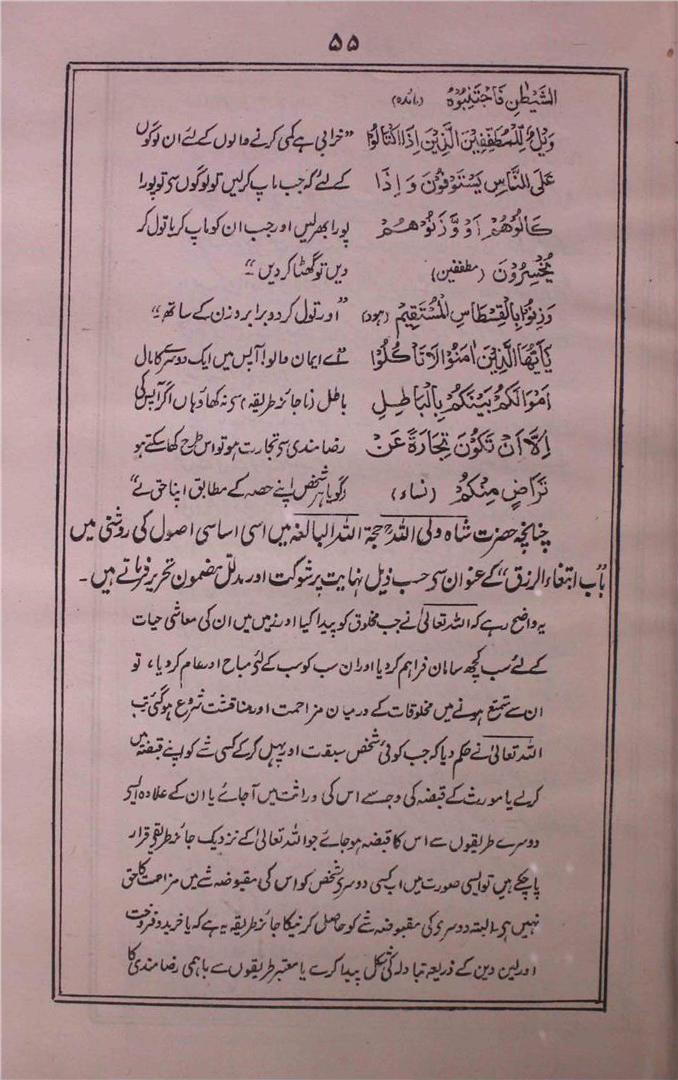 ۵۵
الشَّیْطٰنِ فَاجْتَنِبُوْہُ (مائدہ)
وَیْلٌ لِّلْمُطَفِّفِیْنَ الَّذِیْنَ اِذَا اکْتَالُوْا ”خرابی ہے کمی کرنے والوں کے لئے ان لوگوں
عَلَی النَّاسِ یَسْتَوْفُوْنَ وَ اِذَا کے لئے کہ جب ماپ کر لیں تو لوگوں سے تو پورا
کَالُوْھُمْ اَوْ وَّزَنُوْھُمْ پورا بھر لیں اور جب ان کو ماپ کر یا تول کر
یُخْسِرُوْنَ (مطففین) دیں تو گھٹا کر دیں“
وَزِنُوْا بِالْقِسْطَاسِ الْمُسْتَقِیْمِ (ہود) ”اور تول کر دو برابر وزن کے ساتھ“
یٰٓاَیُّھَا الَّذِیْنَ اٰمَنُوْا لَا تَاْکُلُوْا ”اے ایمان والو! آپس میں ایک دوسرے کا مال
اَمْوَالَکُمْ بَیْنَکُمْ بِالْبَاطِلِ باطل (ناجائز طریقہ) سے نہ کھاؤ ہاں اگر آپس کی
اِلَّا اَنْ تَکُوْنَ تِجَارَۃً عَنْ رضامندی سے تجارت ہو تو اس طرح کھا سکتے ہو
تَرَاضٍ مِنْکُمْ (نساء) (گویا ہر شخص اپنے حصہ کے مطابق اپنا حق لے“
چنانچہ حضرت شاہ ولی اللہؒ حجۃ اللہ البالغہ میں اسی اساسی اصول کی روشنی میں
”باب ابتغاء الرزق“ کے عنوان سے حسب ذیل نہایت پر شوکت اور مدلل مضمون تحریر فرماتے ہیں۔
یہ واضح رہے کہ اللہ تعالیٰ نے جب مخلوق کو پیدا کیا اور زمین میں ان کی معاشی حیات
کے لئے سب کچھ سامان فراہم کر دیا اور ان سب کو سب کے لئے مباح اور عام کر دیا، تو
ان سے تمتع ہونے میں مخلوقات کے درمیان مزاحمت اور مناقشت شروع ہو گئی تب
اللہ تعالیٰ نے حکم دیا کہ جب کوئی شخص سبقت اور پہل کر کے کسی شے کو اپنے قبضہ میں
کر لے یا مورث کے قبضہ کی وجہ سے اس کی وراثت میں آجائے یا ان کے علاوہ ایسے
دوسرے طریقوں سے اس کا قبضہ ہو جائے جو اللہ تعالیٰ کے نزدیک جائز طریقے قرار
پا چکے ہیں تو ایسی صورت میں اب کسی دوسرے شخص کو اس کی مقبوضہ شے میں مزاحمت کا حق
نہیں ہے۔ البتہ دوسرے کی مقبوضہ شے کو حاصل کرنیکا جائز طریقہ یہ ہے کہ یا خرید و فروخت
اور لین دین کے ذریعہ تبادلہ کی شکل پیدا کرے یا معتبر طریقوں سے باہمی رضامندی کا